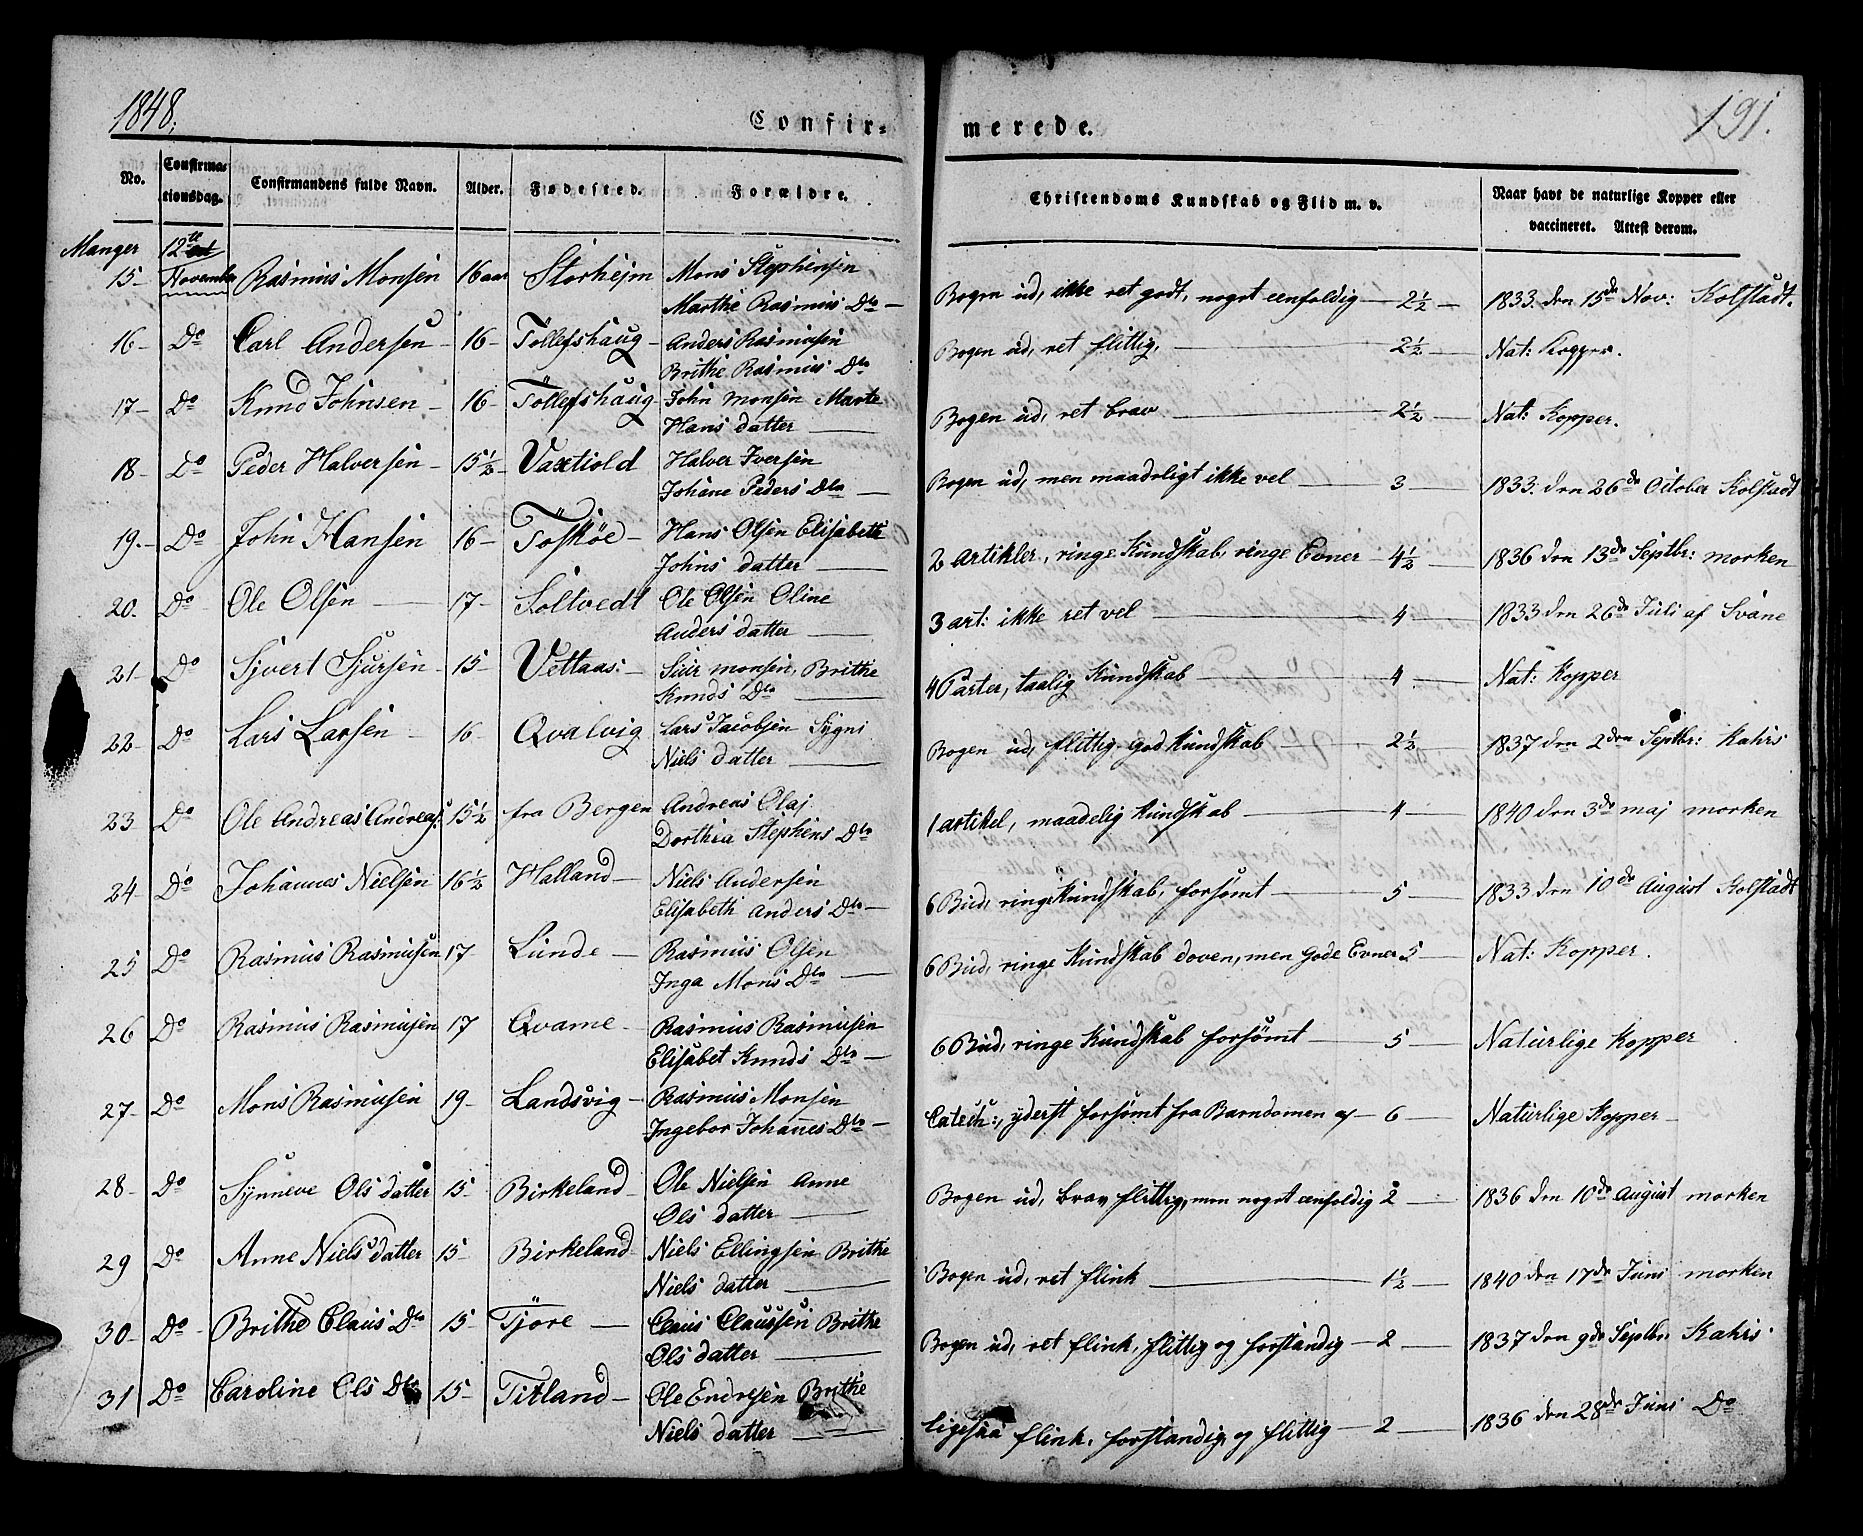 1848.
Confir=
merede.
191.
No.
Confirma=
tionsdag.
Confirmandens fulde Navn.
Alder.
Fødested.
Forældre.
Christendoms Kundskab og Flid m. v.
Naar havt de naturlige Kopper eller
vaccineret. Attest derom.
Manger 12te
15- November Rasmus Monsen 16 aar Storhejm Mons Stephensen
Marthe Rasmus Dtr — Bogen ud, ikke ret godt, noget eenfoldig — 2½ — 1833. den 15de Nov: Kolstadt.
16- Do Carl Andersen - 16 - Töllefshaug - Anders Rasmusen
Brithe Rasmus Dtr Bogen ud, ret flittig, — 2½ — Nat: Kopper.
17- Do Knud Johnsen - 16 - Töllefshaug - John Monsen Marte
Hans datter — Bogen ud, ret brav — 2½ — Nat: Kopper.
18- Do Peder Halversen - 15½ - Vaxtiold Halver Iversen
Johane Peders Dtr — Bogen ud, men maadeligt ikke vel — 3 — 1833. den 26de October Kolstadt
19.- Do John Hansen 16 - Töskóe - Hans Olsen Elisabeth
Johns datter — 2 Artikler, ringe Kundskab, ringe Evner - 4½ - 1836 den 13de Septbr: morken
20. Do Ole Olsen — 17 - Soltvedt Ole Olsen Oline
Anders datter — 3 art: ikke ret vel — 4 — 1833 den 26de Juli af Svane
21- Do Sjvert Sjursen - 15 - Vettaas: - Siur monsen, Brithe
Knuds Dtr — 4 Parter, taalig Kundskab — 4 — Nat: Kopper
22- Do Lars Larsen - 16 - Qvalvig Lars Jacobsen Sygni
Niels datter — Bogen ud, flittig god Kundskab — 2½ — 1837 den 2den Septbr: Kahrs
23 Do Ole Andreas Andreas: 15½ fra Bergen Andreas Olaj
Dorthea Stephens Dtr 1 artikel, maadelig Kundskab — 4 — 1840 den 3de maj morken
24 Do Johannes Nielsen 16½ Halland - Niels Andersen
Elisabeth Anders Dtr — 6 Bud, ringe Kundskab, forsømt — 5 — 1833 den 10de August Kolstadt
25 Do Rasmus Rasmusen 17 Lunde - Rasmus Olsen
Inga Mons Dtr — 6 Bud, ringe Kundskab doven, men gode Evner 5 — Nat: Kopper.
26 Do Rasmus Rasmusen 17 Qvame - Rasmus Rasmusen
Elisabet Knuds Dtr — 6 Bud, ringe Kundskab forsømt — 5 — Naturlige Kopper
27- Do Mons Rasmusen 19 - Landsvig - Rasmus Monsen
Ingebor Johanes Dtr — Catech:, yderst forsømt fra Barndomen af — 6 — Naturlige Kopper -
28- Do Synneve Ols datter 15 - Birkeland - Ole Nielsen Anne
Ols datter — Bogen ud, brav flittig, men noget eenfoldig 2 — 1836 den 10de August morken
29 Do Anne Niels datter 15 - Birkeland - Niels Ellingsen Brithe
Niels datter — Bogen ud, ret flink — 1½ — 1840 den 17de Juni morken
30- Do - Brithe Claus Dtr 15 - Tjore — Claus Claussen Brithe
Ols datter — Bogen ud, ret flink, flittig og forstandig — 2 — 1837 den 9de Septbr. Kahrs
31 Do Caroline Ols Dtr 15 - Titland - Ole Endresen Brithe
Niels datter — ligesaa flink, forstandig, og flittig — 2 — 1836 den 28de Juni Do